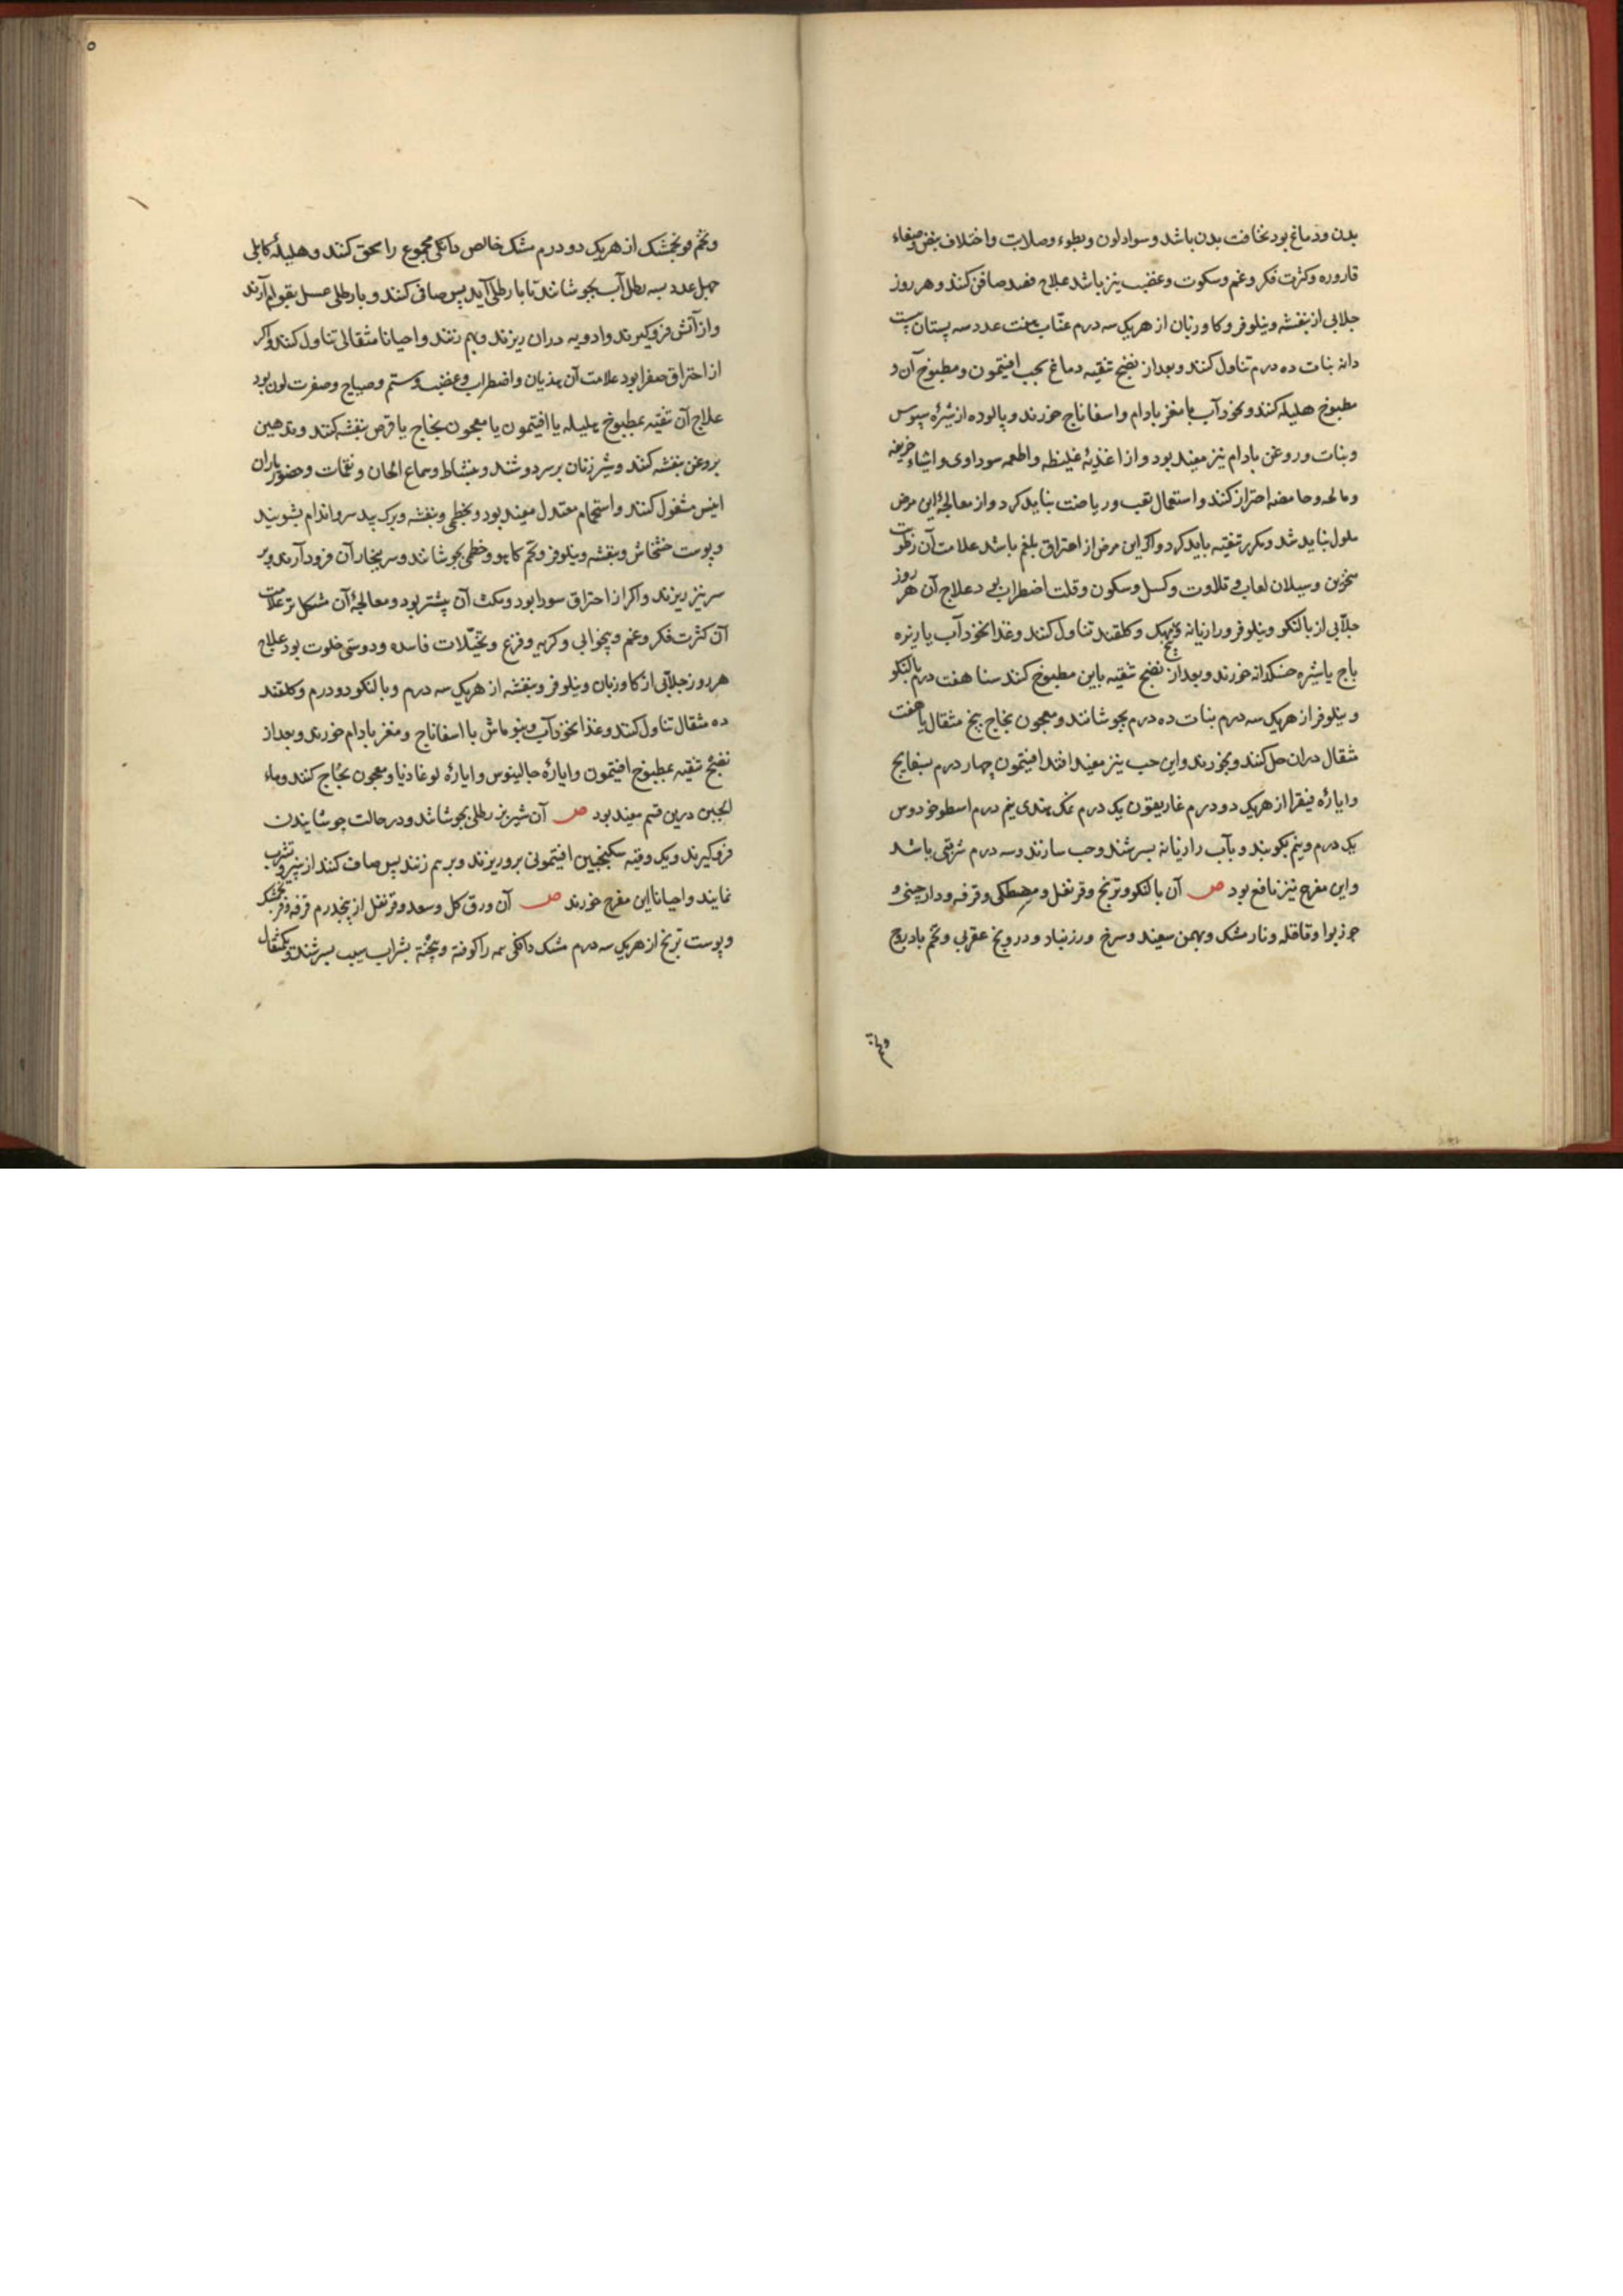 بدن و دماغ بود نحافت بدن باشد و سواد لون و بطوء و صلابت و اختلاف نبض و صفاء
قاروره و کثرت فکر و غم و سکوت و غضب نیز باشد علاج فصد صافن کنند و هر روز
جلابی از بنفشه و نیلوفر و کاوزبان از هر یک سه درم عنّاب هفت عدد سه پستان بیست
دانه نبات ده درم تناول کنند و بعد از نضج تنقیه دماغ بحب افیتمون و مطبوخ آن و
مطبوخ هلیله کنند و نخود آب با مغز بادام و اسفاناج خورند و پالوده از شیرهٔ سپوس
و نبات و روغن بادام نیز مفید بود و از اغذیهٔ غلیظه و اطعمه سوداوی و اشیاء حریفه
و مالحه و حامضه احتراز کنند و استعمال تعب و ریاضت نباید کرد و از معالجهٔ این مرض
ملول نباید شد و مکرر تنقیه باید کرد و اکر این مرض از احتراق بلغم باشد علامت آن رطوبت
منخرین و سیلان لعاب و تلاوت و کسل و سکون و قلت اضطراب بود علاج آن هر روز
جلّابی از بالنکو و نیلوفر و رازیانه و بیخ مهک و کلقند تناول کنند و غذا نخود آب یا زیره
باج یا شیره خسکدانه خورند و بعد از نضج تنقیه باین مطبوخ کنند سنا هفت درم بالنکو
و نیلوفر از هر یک سه درم نبات ده درم بجوشانند و معجون نجاح پنج مثقال یا هفت
مثقال در ان حل کنند و بخورند و این حب نیز مفید افتد افیتمون چهار درم بسفایج
و ایارهٔ فیقرا از هر یک دو درم غاریقون یک درم نمک هندی نیم درم اسطوخودوس
یک درم و نیم بکوبند و بآب رازیانه بسرشند و حب سازند و سه درم شربتی باشد
و این مفرح نیز نافع بود ص آن بالنکو و ترنج و قرنفل و مصطکی و قرفه و دارچینی و
جوزبوا و قاقله و نارمشک و بهمن سفید و سرخ و زرنباد و درونج عقربی و تخم بادروج
و تخم
و تخم فرنجمشک از هر یک دو درم مشک خالص دانکی مجموع را سحق کنند و هلیلهٔ کابلی
چهل عدد بسه رطل آب بجوشانند تا با رطلی آید پس صافی کنند و با رطلی عسل بقوام آرند
و از آتش فروکیرند و ادویه در ان ریزند و بهم زنند و احیانا مثقالی تناول کنند و اکر
از احتراق صفرا بود علامت آن هذیان و اضطراب و غضب و ستم و صیاح و صفرت لون بود
علاج آن تنقیه بمطبوخ هلیله یا افیتمون یا معجون نجاح یا قرص بنفشه کنند و تدهین
بروغن بنفشه کنند و شیر زنان بر سر دوشند و بنشاط و سماع الحان و نغمات و حضور یاران
انیس مشغول کنند و استحمام معتدل مفید بود و بخطمی و بنفشه و برک بید سر و اندام بشویند
و پوست خشخاش و بنفشه و نیلوفر و تخم کاهو و خطمی بجوشانند و سر ببخار آن فرود آرند و بر
سر نیز ریزند و اکر از احتراق سودا بود و مکث آن بیشتر بود و معالجهٔ آن مشکل تر علامت
آن کثرت فکر و غم و بیخوابی و کریه و فزع و تخیّلات فاسده و دوستی خلوت بود علاج
هر روز جلّابی از کاوزبان و نیلوفر و بنفشه از هر یک سه درم و بالنکو دو درم و کلقند
ده مثقال تناول کنند و غذا نخود آب و بنو ماش با اسفاناج و مغز بادام خورند و بعد از
نضج تنقیه بمطبوخ افیتمون و ایارهٔ جالینوس و ایارهٔ لوغاذیا و معجون نجاح کنند و ماء
الجبن درین قسم مفید بود ص آن شیر بز رطلی بجوشانند و در حالت جوشانیدن
فروکیرند و یک وقیه سکنجبین افیتمونی برو ریزند و بر هم زنند پس صاف کنند از پنیر و شرب
نمایند و احیانا این مفرح خورند ص آن ورق کل و سعد و قرنفل از پنجدرم قرفه و فرنجمشک
و پوست ترنج از هر یک سه درم مشک دانکی همه را کوفته و بیخته بشراب سیب بسرشند و یکمثقال